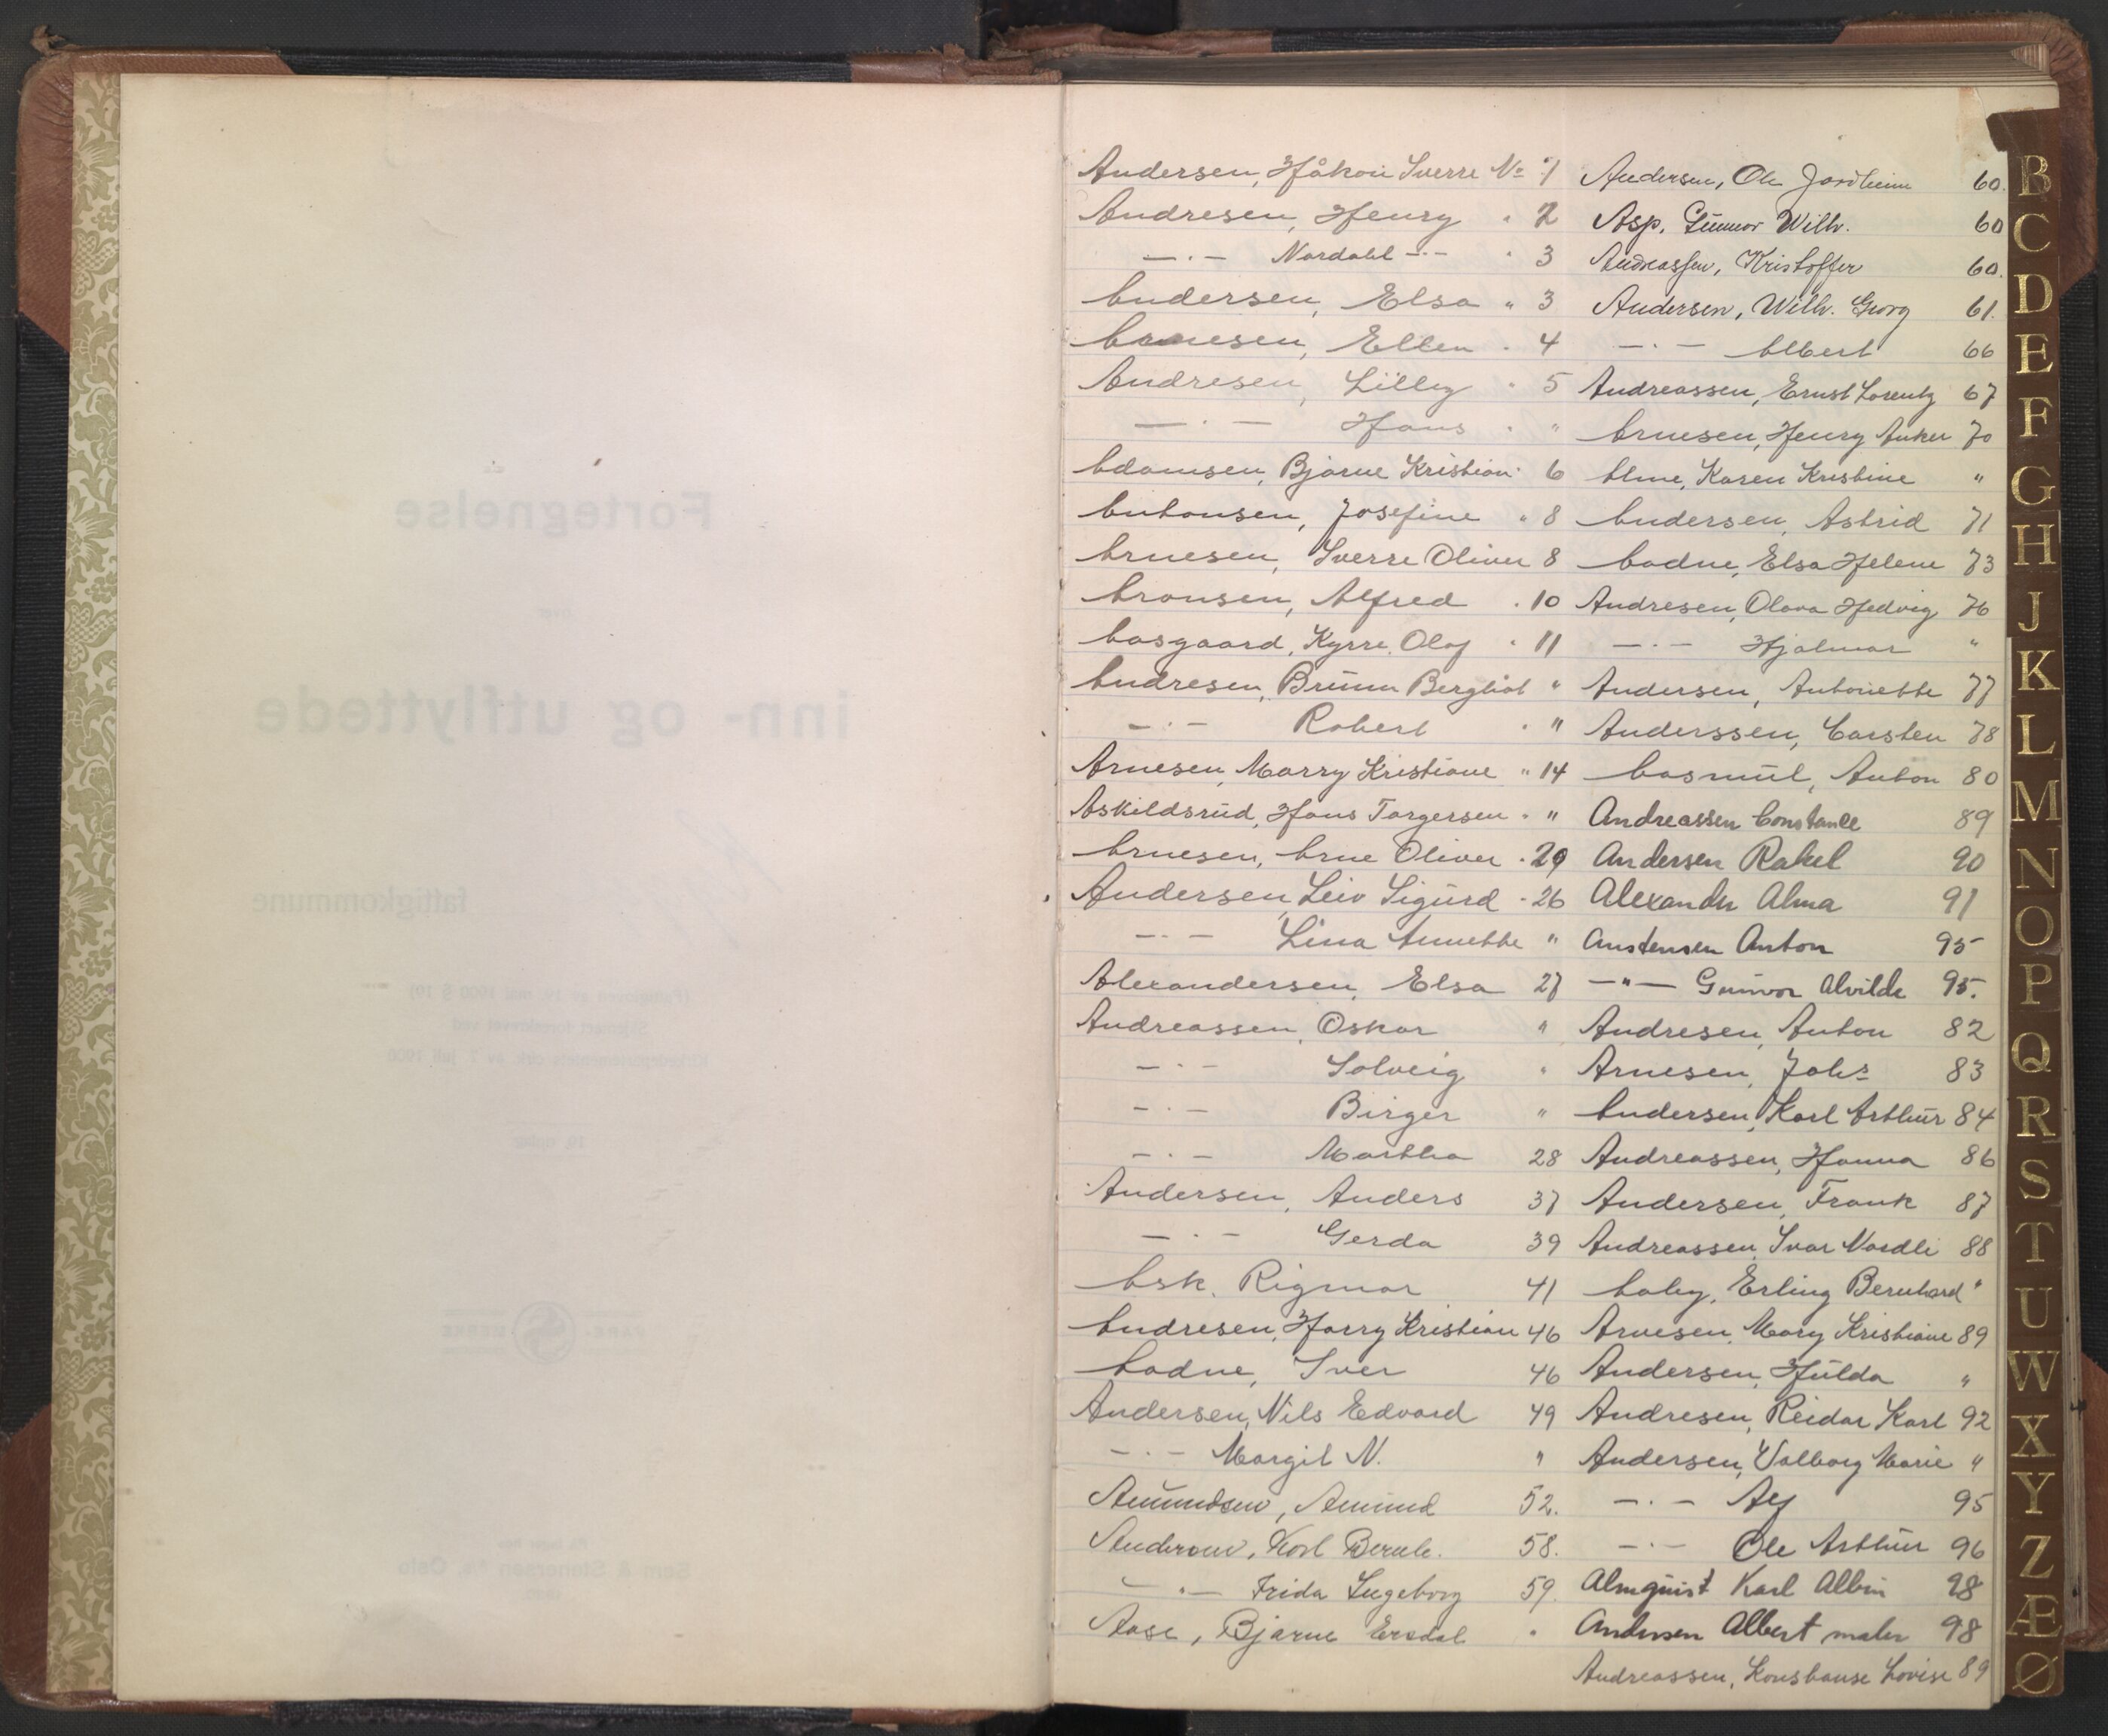 Fortegnelse
over
inn- og utflyttede
fattigkommune
Andersen, Håkon Sverre No 1
Andresen, Henry " 2
— " — Nordahl — " 3
Andersen, Elsa " 3
Arnesen, Ellen " 4
Andresen, Lilly " 5
— " — Hans " "
Adamsen, Bjarne Kristian " 6
Antonsen, Josefine " 8
Arnesen, Sverre Oliver 8
Aronsen, Alfred " 10
Aasgaard, Kyrre Olaf " 11
Andresen, Brunn Bergliot "
— " — Robert " "
Arnesen, Marry Kristiane " 14
Askildsrud, Hans Torgersen " "
Arnesen, Arne Oliver " 20
Andersen, Leiv Sigurd " 26
— " — Lina Annette "
Alexandersen, Elsa 27
Andreassen, Oskar "
— " — Solveig "
— " — Birger "
— " — Martha 28
Andersen, Anders 37
— " — Gerda 39
Ask, Rigmor 41
Andresen, Harry Kristian 46
Aadne, Iver 46
Andersen, Nils Edvard 49
— " — Margit N. "
Amundsen, Amund 52.
Andersen, Karl Bernh. 58.
— " — Frida Ingeborg 59.
Aase, Bjarne Ersdal "
Andersen, Ole Jordheim 60.
Asp, Gunnor Wilh. 60
Andreassen, Kristoffer 60.
Andersen, Wilh. Georg 61.
— " — Albert 66
Andreassen, Ernst Lorentz 67
Arnesen, Henry Anker 70
Alme, Karen Kristine "
Andersen, Astrid 71
Aadne, Elsa Helene 73
Andresen, Olava Hedvig 76
— " — Hjalmar "
Andersen, Antonette 77
Anderssen, Carsten 78
Aasmul, Anton 80
Andreassen Constance 89
Andersen Rakel 90
Alexander Alma 91
Austensen Anton 95
— " — Gunvor Alvilde 95.
Andresen, Anton 82
Arnesen, Johs 83
Andersen, Karl Arthur 84
Andreassen, Hanna 86
Andersen, Frank 87
Andreassen, Ivar Nordli 88
Aaby, Erling Bernhard "
Arnesen, Mary Kristiane 89
Andersen, Hulda "
Andresen, Reidar Karl 92
Andersen, Valborg Marie "
— " — Alf 95
— " — Ole Arthur 96
Almquist Karl Albin 98
Andersen Albert maler 98
Andreassen, Konstanse Lovise 89
B
C
D
E
F
G
H
J
K
L
M
N
O
P
Q
R
S
T
U
W
X
Y
Z
Æ
Ø